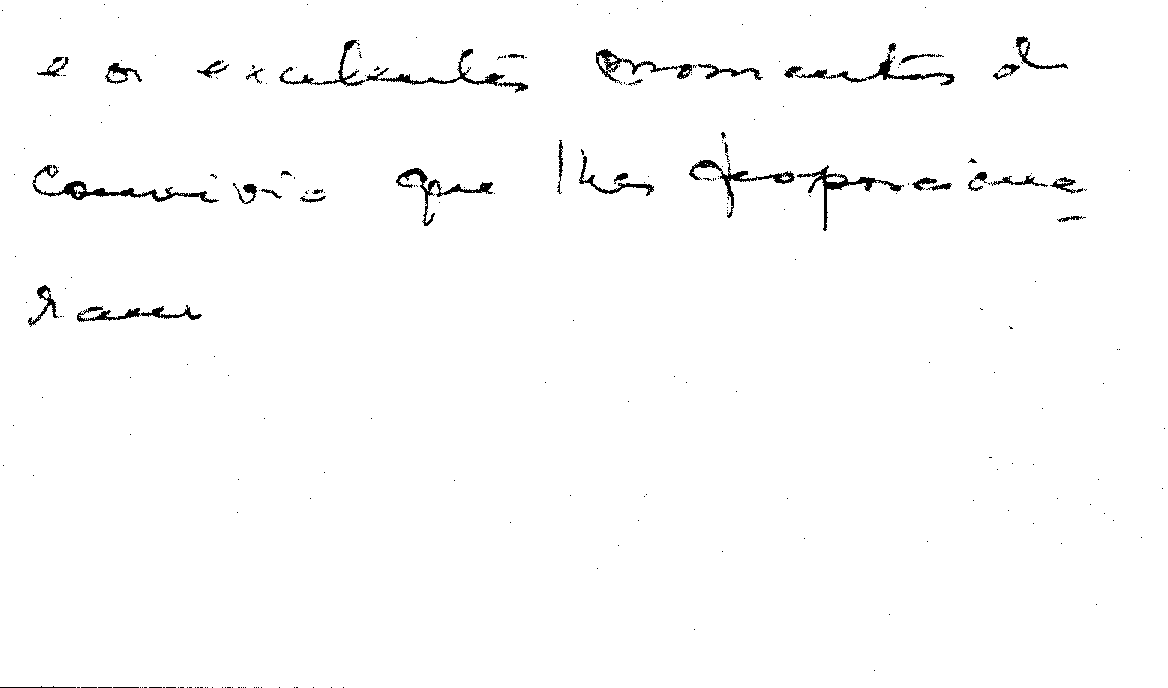 e os excelentes momentos d
convívio que lhes proporciona
ram